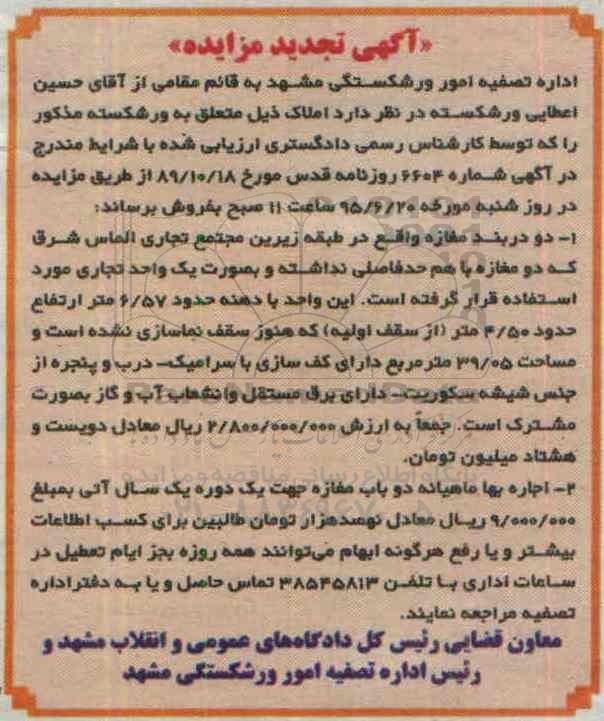 «آگهی تجدید مزایده»
اداره تصفیه امور ورشکستگی مشهد به قائم مقامی از آقای حسین
اعطایی ورشکسته در نظر دارد املاک ذیل متعلق به ورشکسته مذکور
را که توسط کارشناس رسمی دادگستری ارزیابی شده با شرایط مندرج
در آگهی شماره ۶۶۰۴ روزنامه قدس مورخ ۸۹/۱۰/۱۸ از طریق مزایده
در روز شنبه مورخه ۹۵/۶/۲۰ ساعت ۱۱ صبح بفروش برساند:
۱- دو دربند مغازه واقع در طبقه زیرین مجتمع تجاری الماس شرق
که دو مغازه با هم حدفاصلی نداشته و بصورت یک واحد تجاری مورد
استفاده قرار گرفته است. این واحد با دهنه حدود ۶/۵۷ متر ارتفاع
حدود ۴/۵۰ متر (از سقف اولیه) که هنوز سقف نماسازی نشده است و
مساحت ۳۹/۰۵ مترمربع دارای کف سازی با سرامیک- درب و پنجره از
جنس شیشه سکوریت- دارای برق مستقل وانشعاب آب و گاز بصورت
مشترک است. جمعاً به ارزش ۲/۸۰۰/۰۰۰/۰۰۰ ریال معادل دویست و
هشتاد میلیون تومان.
۲- اجاره بها ماهیانه دو باب مغازه جهت یک دوره یک سال آتی بمبلغ
۹/۰۰۰/۰۰۰ ریال معادل نهصدهزار تومان طالبین برای کسب اطلاعات
بیشتر و یا رفع هرگونه ابهام می‌توانند همه روزه بجز ایام تعطیل در
ساعات اداری با تلفن ۳۸۵۴۵۸۱۳ تماس حاصل و یا به دفتر اداره
تصفیه مراجعه نمایند.
معاون قضایی رئیس کل دادگاه‌های عمومی و انقلاب مشهد و
رئیس اداره تصفیه امور ورشکستگی مشهد